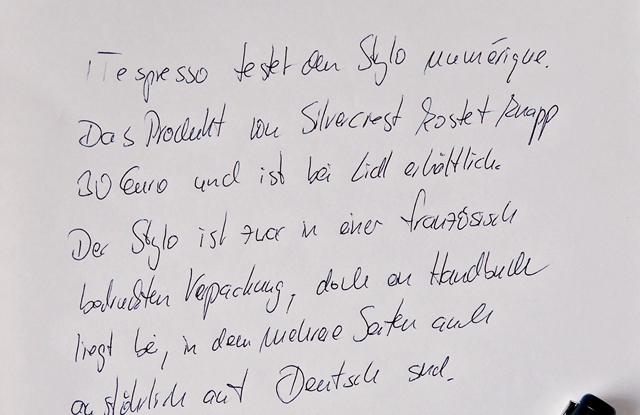 ITespresso testet den Stylo numérique.
Das Produkt von Silvercrest kostet knapp
30 Euro und ist bei Lidl erhältlich.
Der Stylo ist zwar in einer französisch
bedruckten Verpackung, doch ein Handbuch
liegt bei, in dem mehrere Seiten auch
ausführlich auf Deutsch sind.